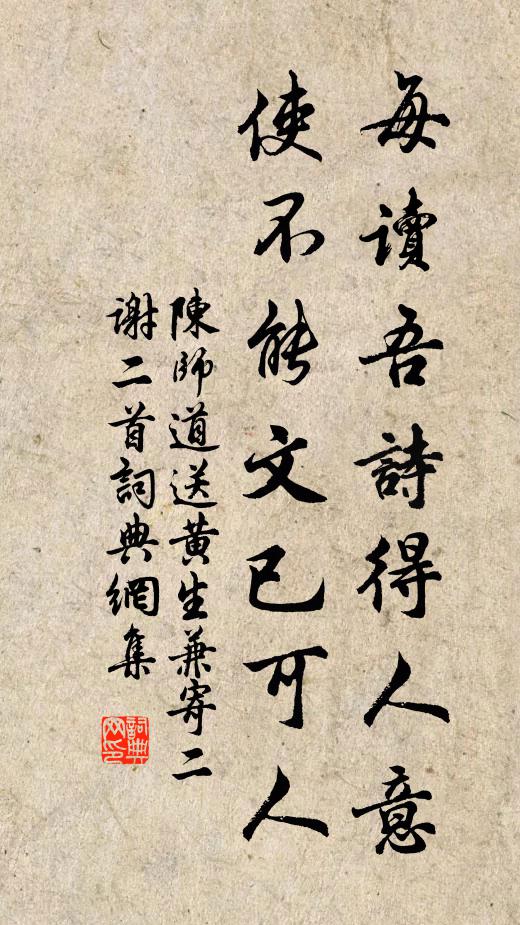 每讀吾詩得人意
使不能文已可人
陳師道送黄生兼寄二
謝二首詞典網集
詞典
网印